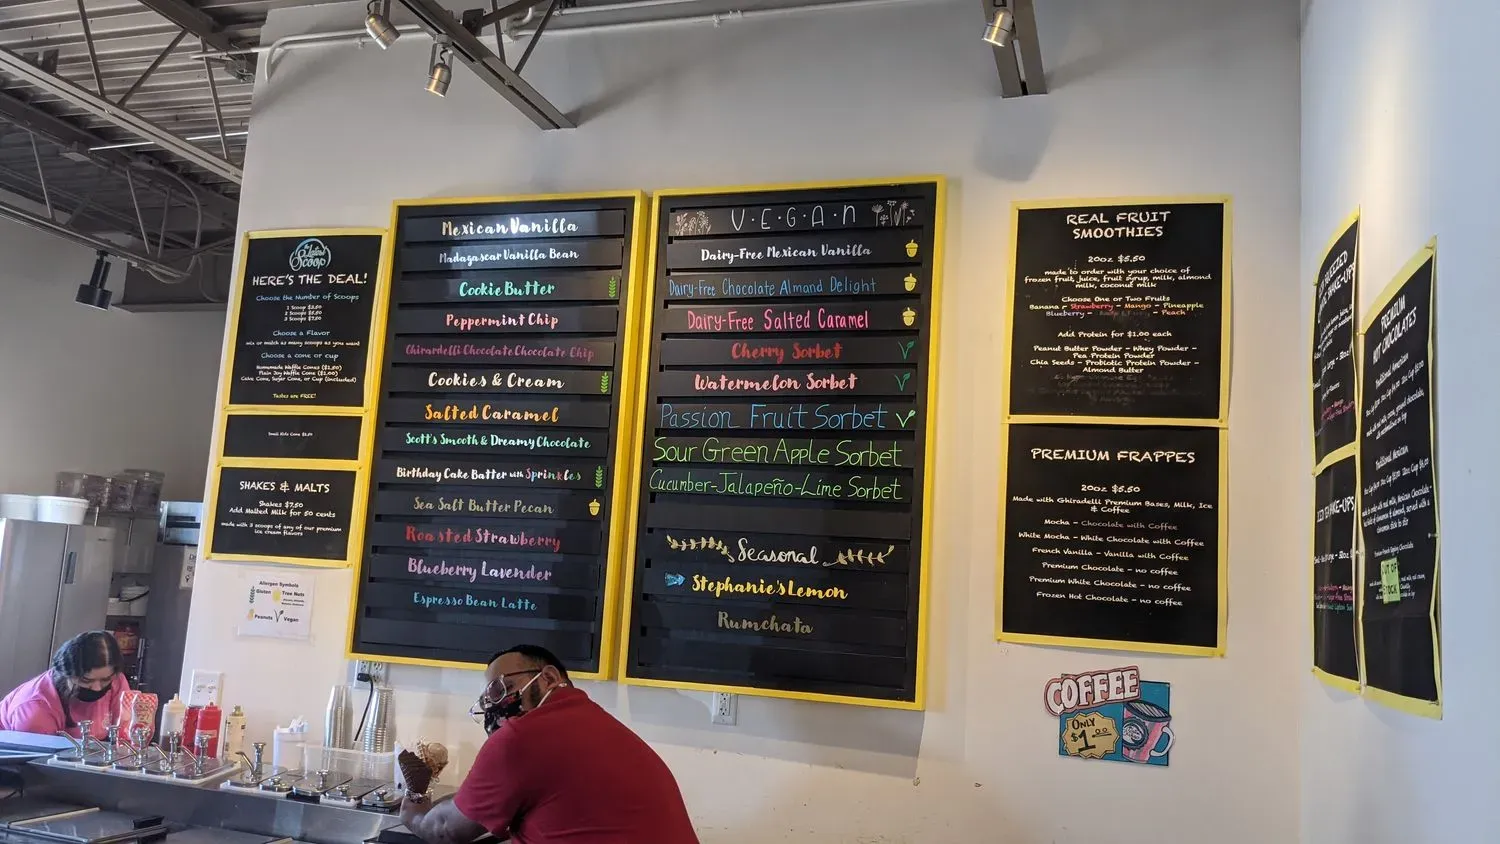 Scoop
HERE'S THE DEAL!
Choose the Number of Scoops
1 Scoop $3.50
2 Scoops $5.50
3 Scoops $7.50
Choose a Flavor
mix or match as many scoops as you want
Choose a cone or cup
Homemade Waffle Cones ($1.50)
Plain Joy Waffle Cone ($1.00)
Cake Cone, Sugar Cone, or Cup (included)
Tastes are FREE!
Small Kids Cone
SHAKES & MALTS
Shakes $7.50
Add Malted Milk for 50 cents
made with 3 scoops of any of our premium
ice cream flavors
Allergen Symbols
Gluten
Tree Nuts
Peanuts
Vegan
Mexican Vanilla
Madagascar Vanilla Bean
Cookie Butter
Peppermint Chip
Ghirardelli Chocolate Chocolate Chip
Cookies & Cream
Salted Caramel
Scott's Smooth & Dreamy Chocolate
Birthday Cake Batter with Sprinkles
Sea Salt Butter Pecan
Roasted Strawberry
Blueberry Lavender
Espresso Bean Latte
V·E·G·A·N
Dairy-Free Mexican Vanilla
Dairy-Free Chocolate Almond Delight
Dairy-Free Salted Caramel
Cherry Sorbet
Watermelon Sorbet
Passion Fruit Sorbet
Sour Green Apple Sorbet
Cucumber-Jalapeño-Lime Sorbet
Seasonal
Stephanie's Lemon
Rumchata
REAL FRUIT
SMOOTHIES
20oz $5.50
made to order with your choice of
frozen fruit, juice, fruit syrup, milk, almond
milk, coconut milk
Choose One or Two Fruits
Banana - Strawberry - Mango - Pineapple
Blueberry - Peach
Add Protein for $1.00 each
Peanut Butter Powder - Whey Powder -
Pea Protein Powder
Chia Seeds - Probiotic Protein Powder -
Almond Butter
PREMIUM FRAPPES
20oz $5.50
Made with Ghirardelli Premium Bases, Milk, Ice
& Coffee
Mocha - Chocolate with Coffee
White Mocha - White Chocolate with Coffee
French Vanilla - Vanilla with Coffee
Premium Chocolate - no coffee
Premium White Chocolate - no coffee
Frozen Hot Chocolate - no coffee
COFFEE
ONLY
$1.00
PREMIUM
HOT CHOCOLATES
Traditional American
Traditional Mexican
OUT OF
STOCK